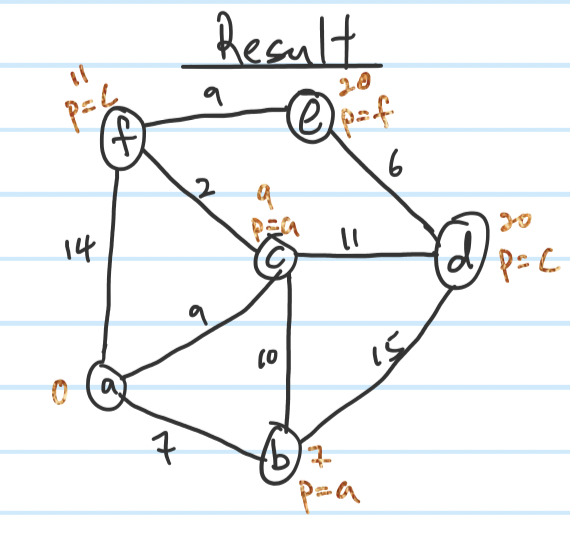 Result
11
p=c
f
9
e
20
p=f
2
6
14
9
p=a
c
11
d
20
p=c
9
10
15
0
a
7
b
7
p=a